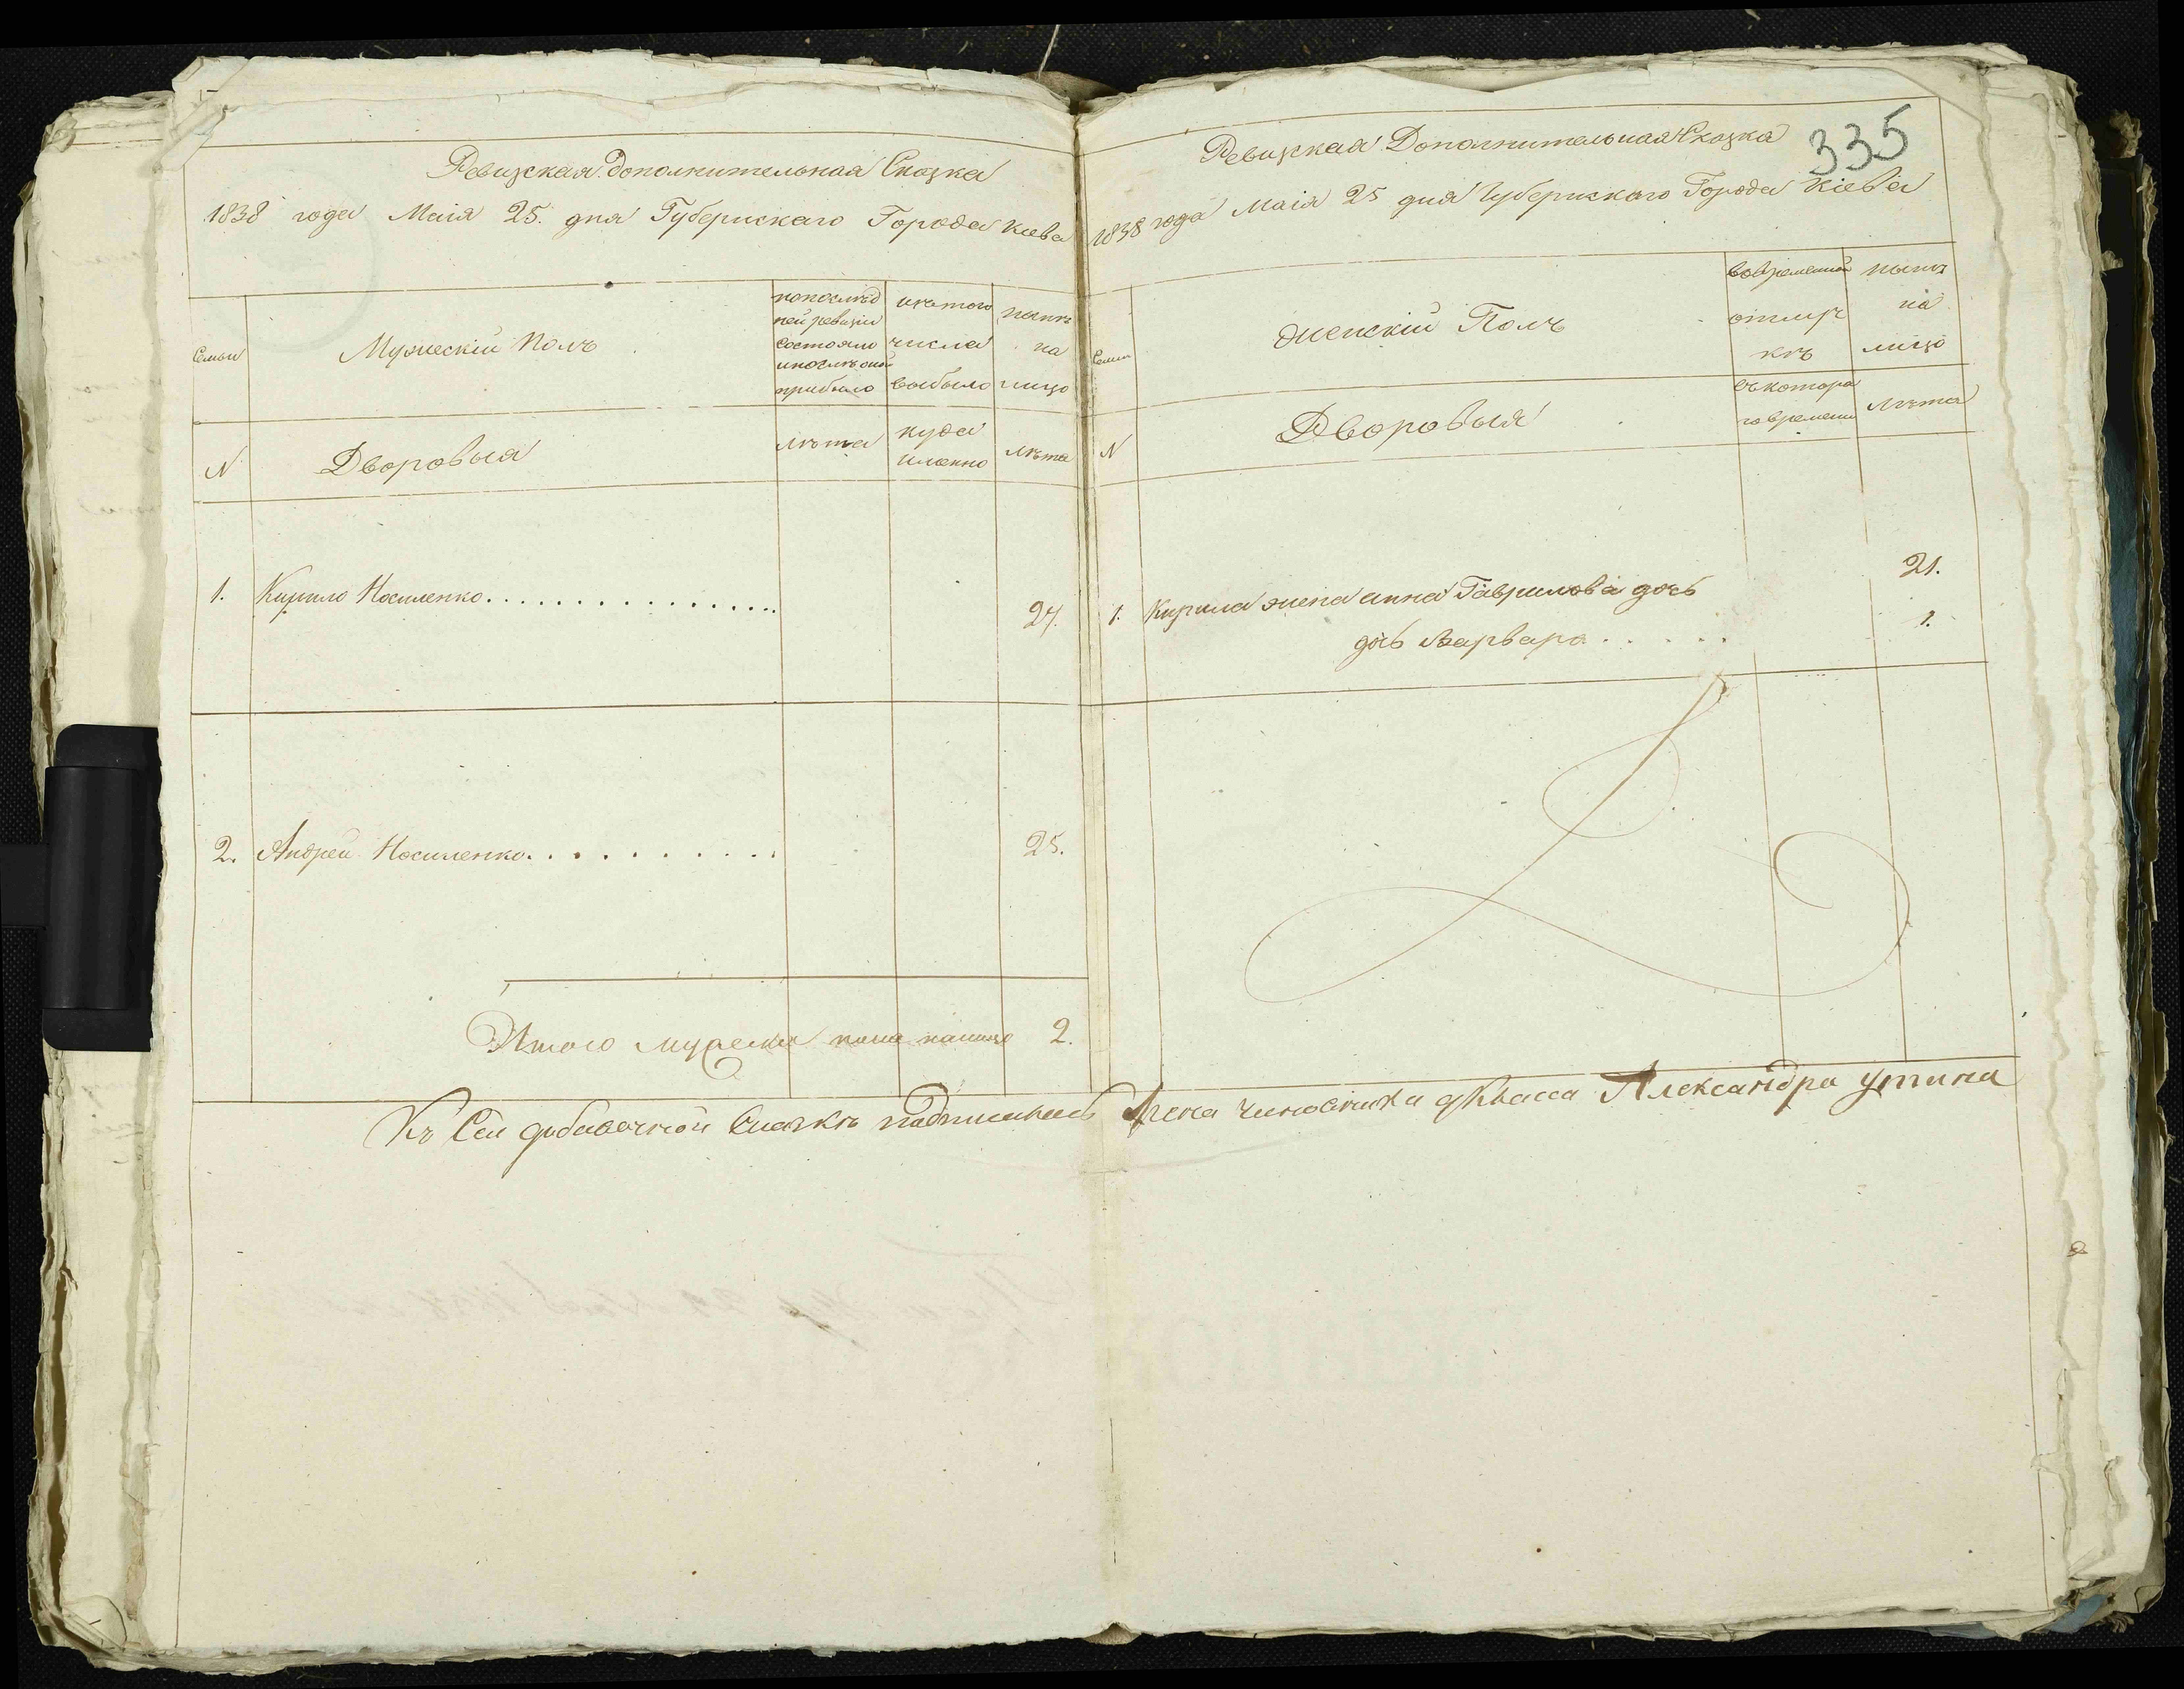 Ревизская дополнительная Сказка
1838 года Маія 25. дня Губернскаго Города Кіева
Семьи
Мужескій Полъ
попослѣд
ней ревизіи
состояло
ипослѣ оной
прибыло
изътого
числа
выбыло
нынѣ
на
лицо
N
Дворовыя
лѣта
куда
именно
лѣта
1. Кирило Носиленко
27.
2. Андрей Носиленко
25.
Итого мужеска пола налицо 2.
335
Ревизская Дополнительная Сказка
1838 года Маія 25 дня Губернскаго Города Кіева
Семьи
Женскій Полъ
вовременной
отлуч
кѣ
нынѣ
на
лицо
N
Дворовыя
съкотора
говремени
лѣта
1. Кирила жена анна Гаврилова дочь
21.
дочь Варвара
1.
Къ Сей добавочной Сказкѣ подписалась Жена чиновника 9 Класса Александра утина